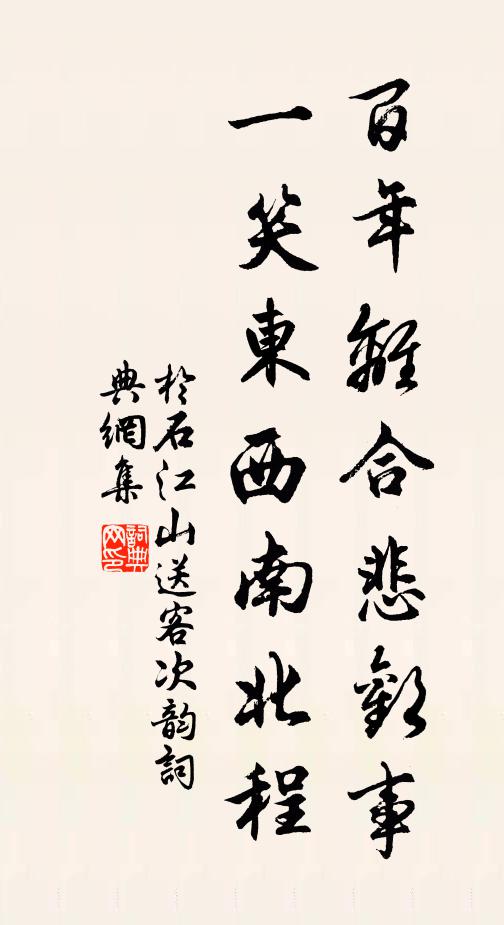 百年離合悲歡事
一笑東西南北程
於石江山送客次韵詞
典網集
詞典網印